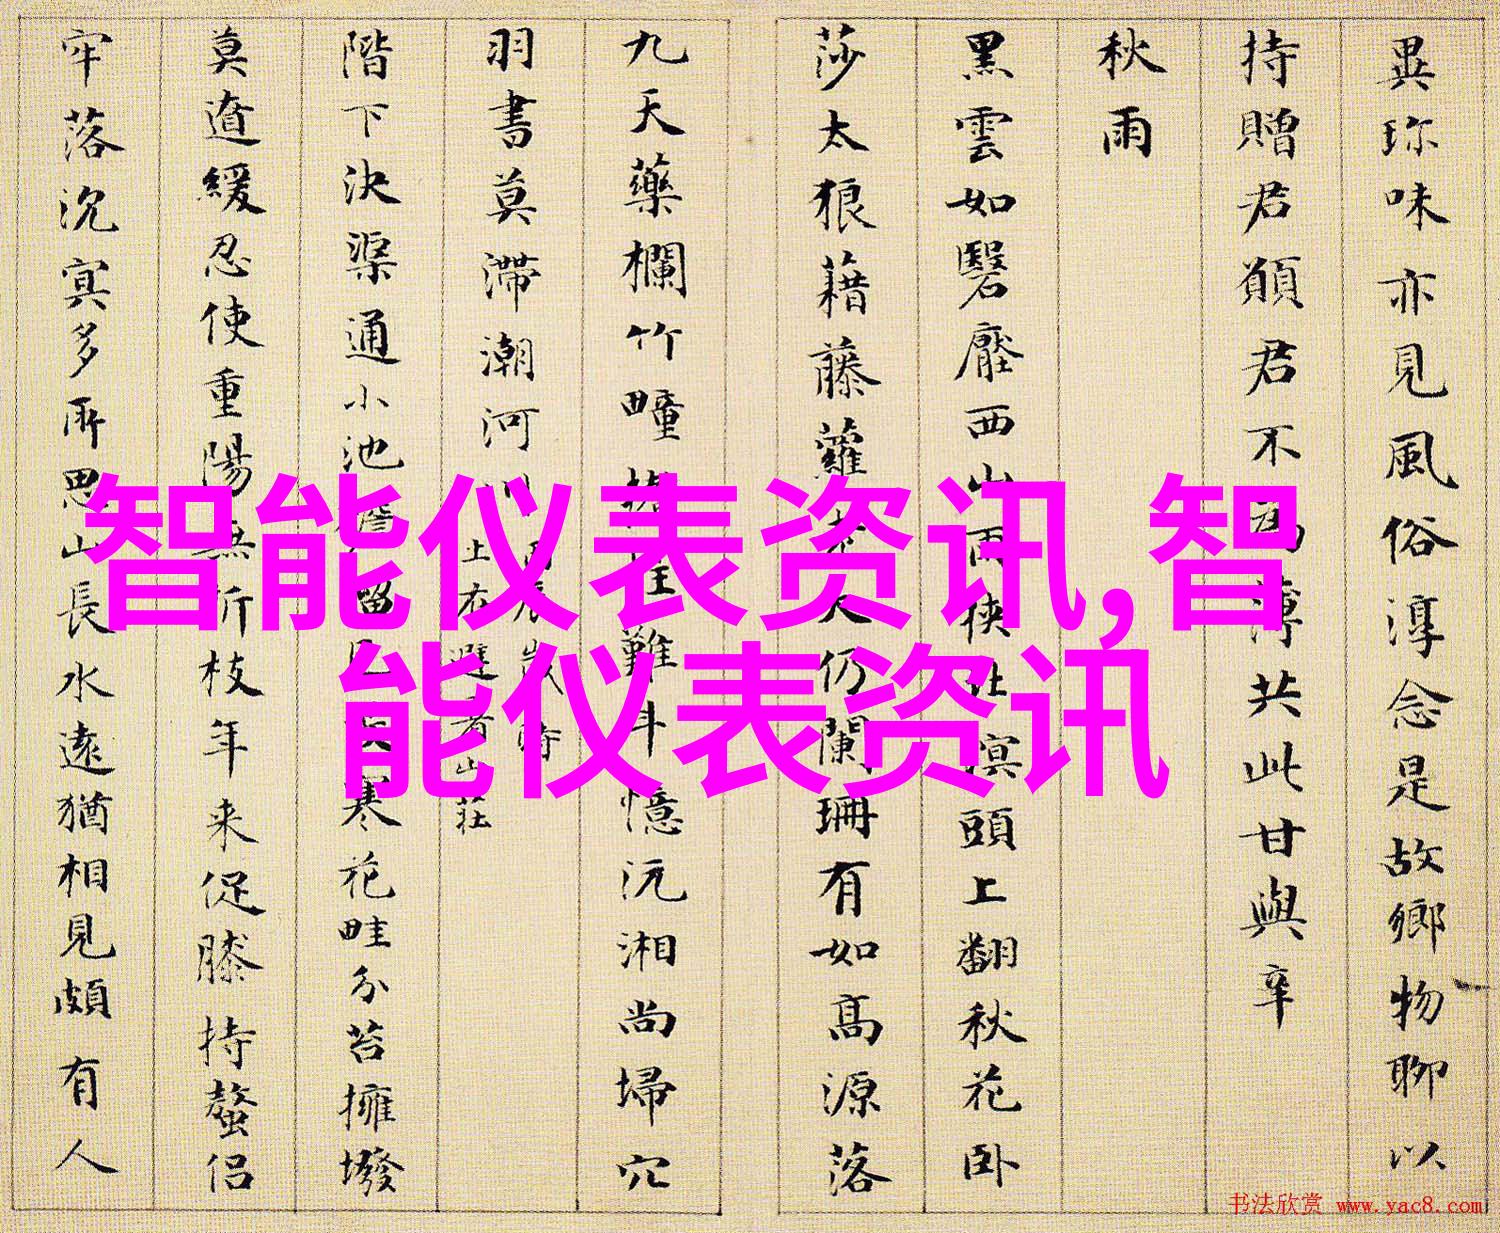 異珎味亦見風俗淳念是故鄉物聊以
持贈君願君不為薄共此甘與辛
秋雨
黑雲如翳壓西山雨俠溟頭上翻秋花卧
莎太狼藉藤蘿仍闌珊有如高源落
九天藥欄竹疃難斗憶沅湘尚埽穴
羽書莫滯潮河
上右避者山莊
階下決渠通小池留寒花畦分苔擁墢
莫遒緩忍使重陽無折枝年来促膝持螯侣
牢落沉冥多所思山長水遠猶相見頗有人
智能仪表资讯,智
能仪表资讯
书法欣赏 www.yac8.com